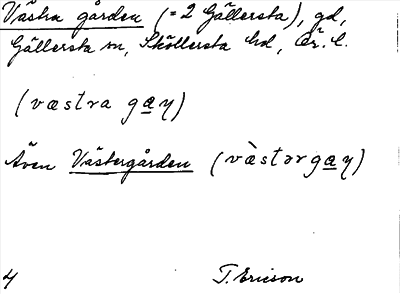 Västra gården (= 2 Gällersta), gd,
Gällersta sn, Sköllersta hd, Ör. l.
(væstra gay)
Även Västergården (væ̀stərgay)
4 T. Ericson